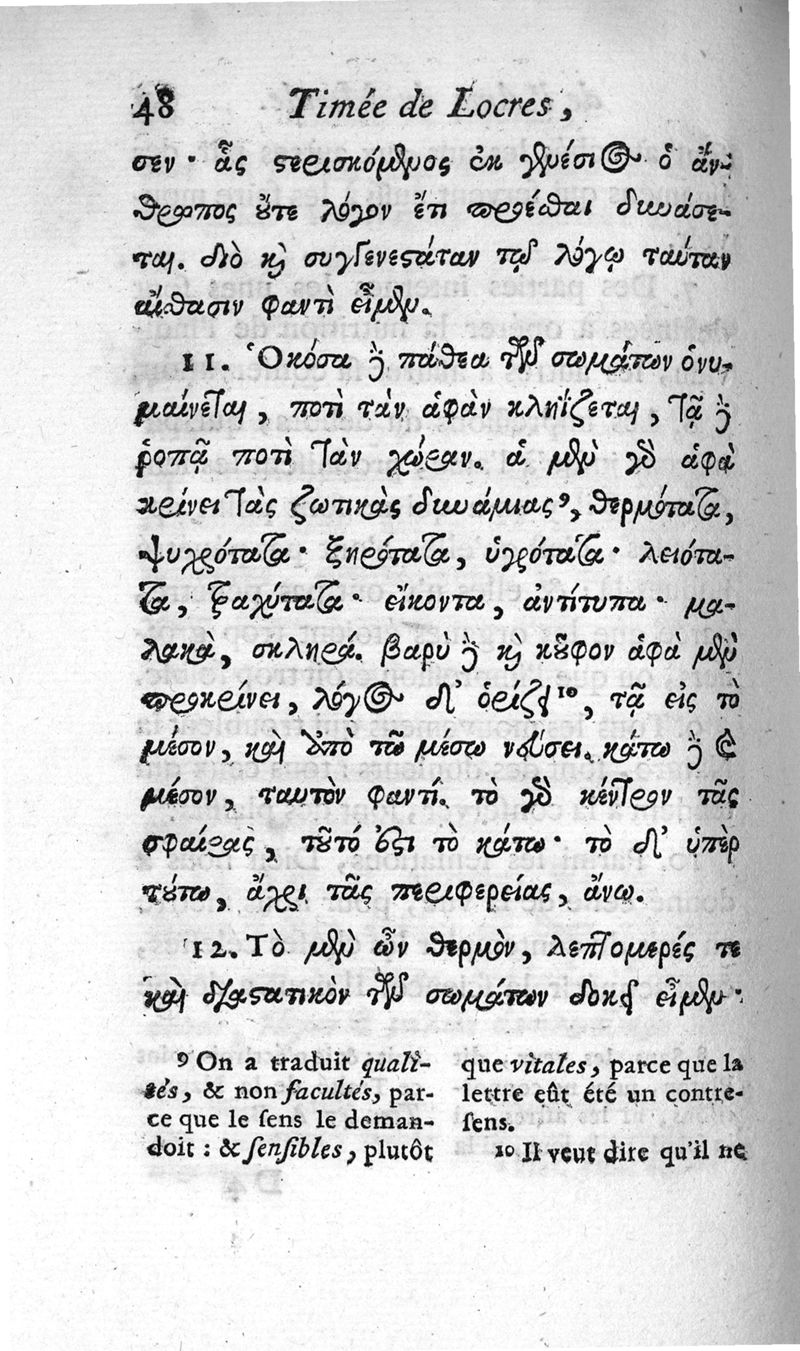 48 Timée de Locres,
σεν· ἇς στερισκόμενος ἐκ γενέσιος ὁ ἄν-
θρωπος οὔτε λόγον ἔτι προέσθαι δυνάσε-
ται. διὸ καὶ συγγενεστάταν τῷ λόγῳ ταύταν
αἴσθασιν φαντὶ εἶμεν.
11. Ὁκόσα δὲ πάθεα τῶν σωμάτων ὀνυ-
μαίνεται, ποτὶ τὰν ἁφὰν κληΐζεται, τᾷ δὲ
ῥοπᾷ ποτὶ τὰν χώραν. ἁ μὲν γὰρ ἁφὰ
κρίνει τὰς ζωτικὰς δυνάμιας⁹, θερμότατα,
ψυχρότατα· ξηρότατα, ὑγρότατα· λειότα-
τα, τραχύτατα· εἴκοντα, ἀντίτυπα· μα-
λακὰ, σκληρά. βαρὺ δὲ καὶ κοῦφον ἁφὰ μὲν
προκρίνει, λόγος δ' ὁρίζει¹⁰, τᾷ εἰς τὸ
μέσον, καὶ ἀπὸ τῶ μέσω νεύσει. κάτω δὲ καὶ
μέσον, ταυτὸν φαντί. τὸ γὰρ κέντρον τᾶς
σφαίρας, τοῦτό ἐστι τὸ κάτω· τὸ δ' ὑπὲρ
τούτω, ἄχρι τᾶς περιφερείας, ἄνω.
12. Τὸ μὲν ὦν θερμὸν, λεπτομερές τε
καὶ διαστατικὸν τῶν σωμάτων δοκεῖ εἶμεν·
9 On a traduit quali-
tés, & non facultés, par-
ce que le sens le deman-
doit : & sensibles, plutôt
que vitales, parce que la
lettre eût été un contre-
sens.
10 Il veut dire qu'il ne